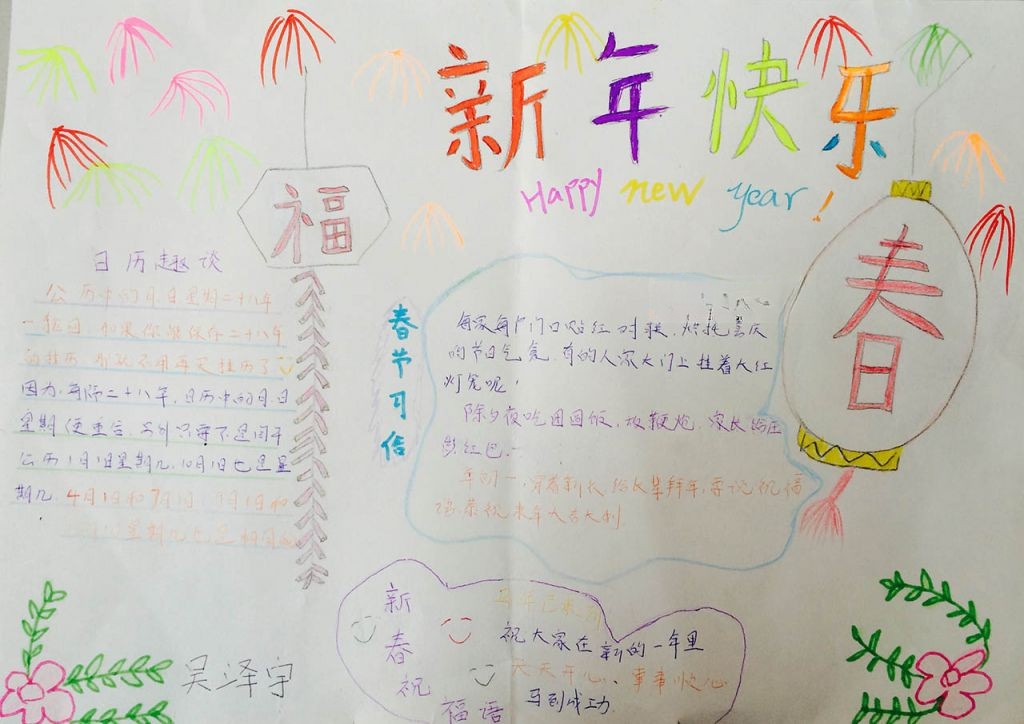 新年快乐
Happy new year!
福
春
日历趣谈
公历中的月、日星期二十八年
一轮回，如果你能保存二十八年
的挂历，那就不用再买挂历了
因为，每隔二十八年，日历中的月、日
星期便重合，另外只要不是闰年
公历1月1日星期几，10月1日也是星
期几，4月1日和7月1日，9月1日和
星期几也是相同的
春节习俗
每家每户门口贴红对联，烘托喜庆
的节日气氛，有的人家大门上挂着大红
灯笼呢！
除夕夜吃团圆饭，放鞭炮，家长给压
红包
年初一，穿着新长辈拜年，要说祝福
来年大吉大利
新春祝福语
马年已来到
祝大家在新的一年里
天天开心、事事快心
马到成功
吴泽宇